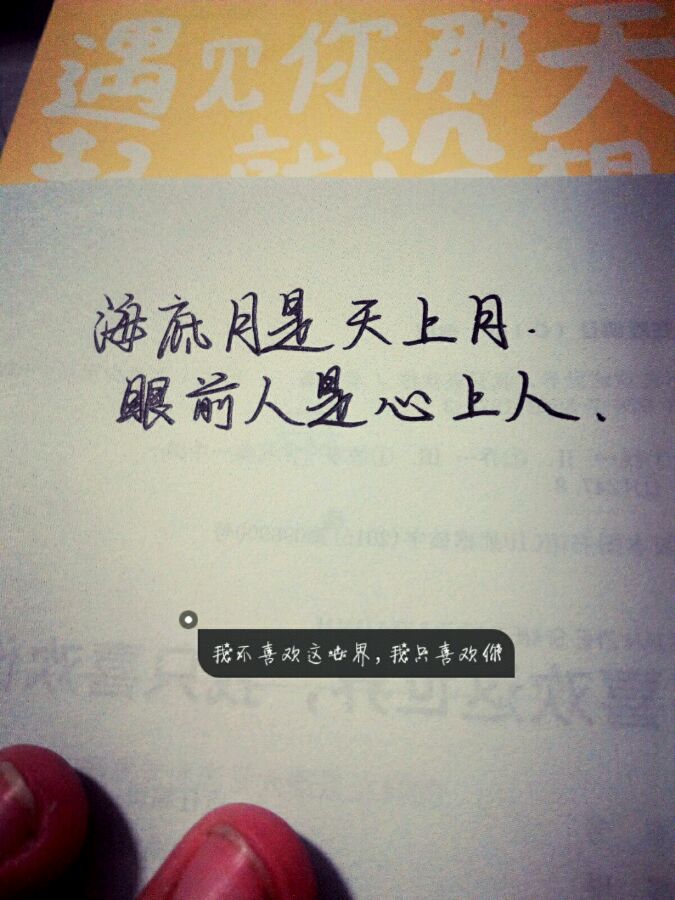 遇见你那天
起 就没想
海底月是天上月.
眼前人是心上人.
我不喜欢这世界,我只喜欢你